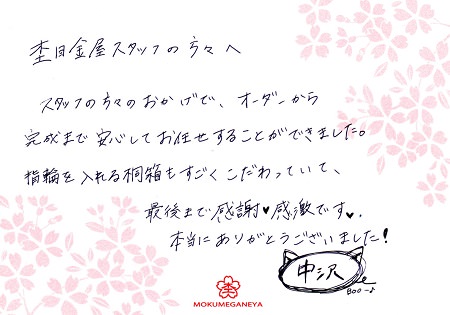 杢目金屋スタッフの方々へ
スタッフの方々のおかげで、オーダーから
完成まで安心してお任せすることができました。
指輪を入れる桐箱もすごくこだわっていて、
最後まで感謝♥感激です♥.
本当にありがとうございました!
中沢
BOO~♪
MOKUMEGANEYA